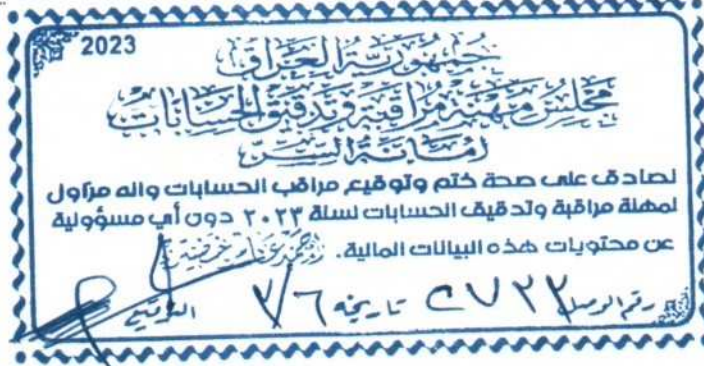 2023
جمهورية العراق
مجلس مهنة مراقبة وتدقيق الحسابات
امانة السر
نصادق على صحة ختم وتوقيع مراقب الحسابات وانه مزاول
لمهنة مراقبة وتدقيق الحسابات لسنة ٢٠٢٣ دون أي مسؤولية
عن محتويات هذه البيانات المالية.
رقم الوصل تاريخه ٧/٦ التوقيع